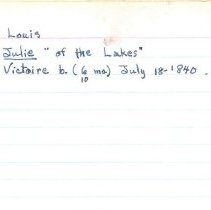 Louis
Julie "of the Lakes"
Victoire b. (6 mo.) July 18-1840.
10